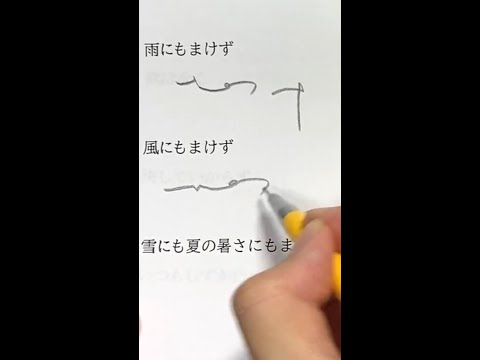 雨にもまけず
風にもまけず
雪にも夏の暑さにもま